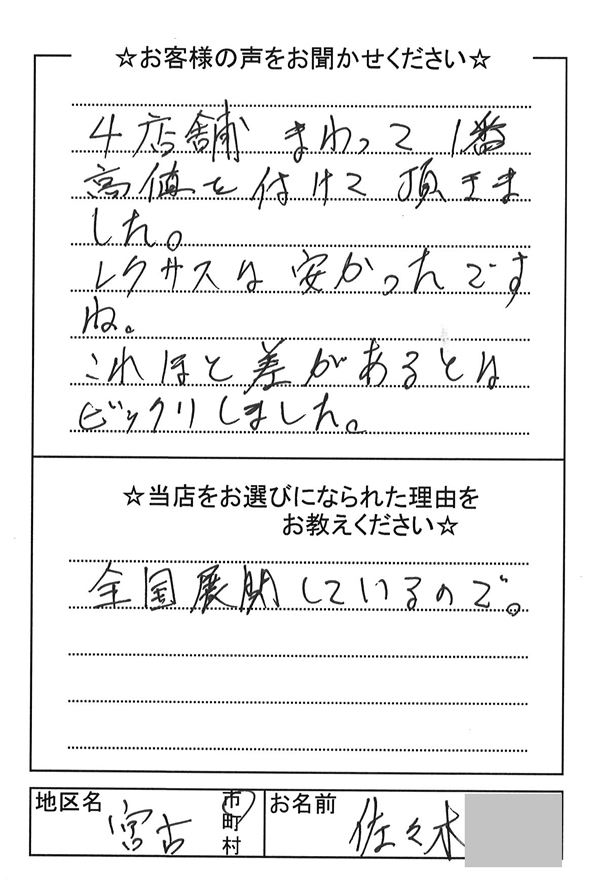 ☆お客様の声をお聞かせください☆
4店舗 まわって 1番
高値を付けて頂きま
した。
レクサスは安かったです
ね。
これほど差があるとは
ビックリしました。
☆当店をお選びになられた理由を
お教えください☆
全国展開しているので。
地区名 宮古 市町村 お名前 佐々木